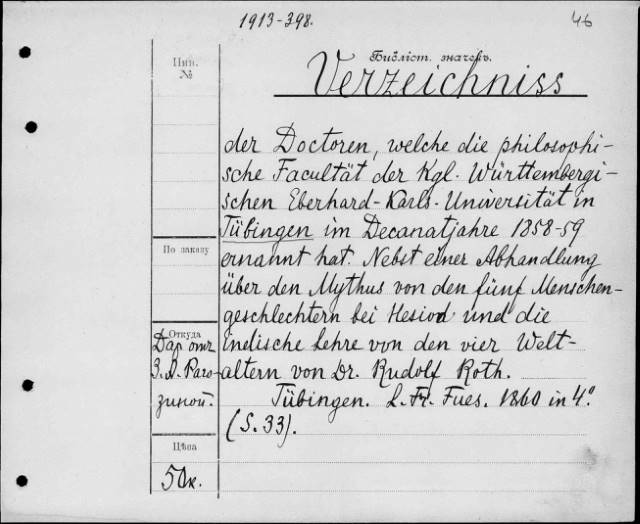 1913-398.
46
Инв.
№
Библіот. значекъ.
Verzeichniss
der Doctoren, welche die philosophi-
sche Facultät der Kgl. Württembergi-
schen Eberhard-Karls-Universität in
Tübingen im Decanatjahre 1858-59
По заказу
ernannt hat. Nebst einer Abhandlung
über den Mythus von den fünf Menschen-
geschlechtern bei Hesiod und die
Откуда
Даръ отъ
indische Lehre von den vier Welt-
З. А. Раго-
altern von Dr. Rudolf Roth.
зиной.
Tübingen. L. Fr. Fues. 1860 in 4.°
(S. 33).
Цѣна
50к.